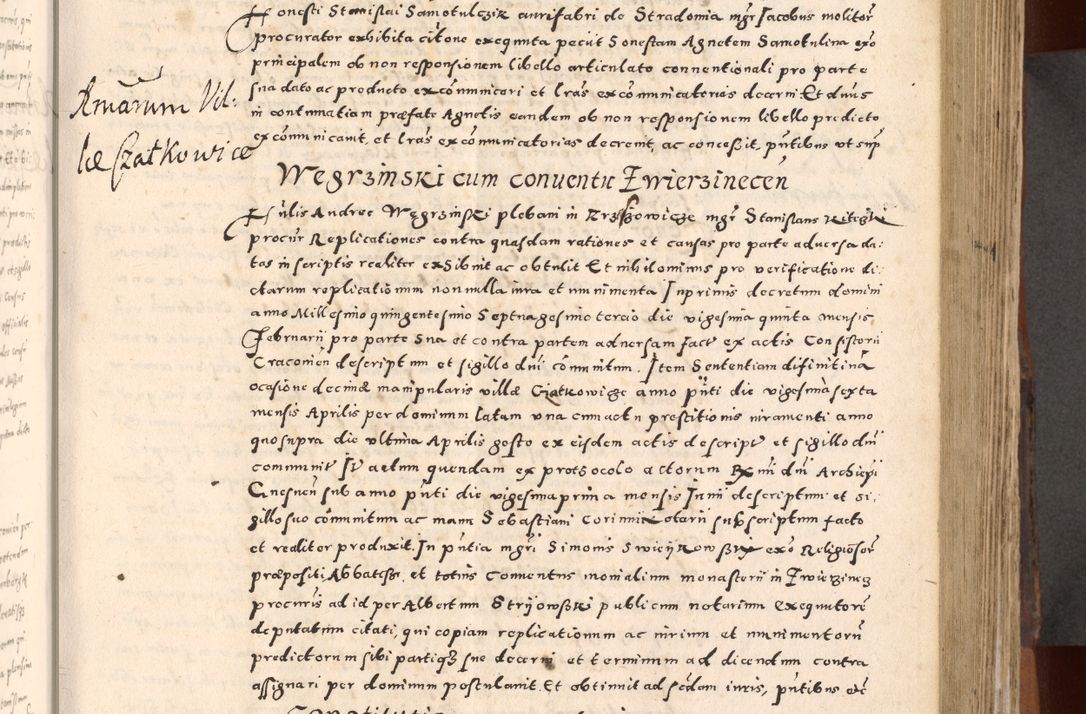 Honesti Stanislai Samotulczik aurifabri de Stradomia mgr Jacobus molitor
procurator exhibita citone exequuta peciit Honestam Agnetem Samotulina exo
principalem ob non responsionem libello articulato conventionali pro parte
sua dato ac producto excommunicari et lras excommunicatorias decerni Et dnus
in contumatiam præfate Agnetis eandem ob non responsionem libello predicto
excommunicavit, et lras excommunicatorias decrevit, ac concessit, pntibus ut sup
Amarum Vil:
læ Czatkowice
Węgrzinski cum conventu Zwierzinecen
Hulis Andree Węgrzinski plebani in mgr Stanislaus
procur Replicationes contra quasdam rationes et causas pro parte adversa da:
tas in scriptis realiter exhibuit ac obtulit Et nihilominus pro verificatione di:
ctarum replicationum nonnulla iura et munimenta Inprimis decretum domini
anno Millesimo quingentesimo Septuagesimo tercio die vigesima quinta mensis
Februarii pro parte sua et contra partem adversam facte ex actis Consistorii
Cracovien descriptum et sigillo dni communitum. Item Sententiam difinitiva
ocasione decimæ manipularis villæ Czatkowicze anno pnti die vigesima sexta
mensis Aprilis per dominum latam una cum actu prestitionis iuramenti anno
quo supra die ultima Aprilis gesto ex eisdem actis descript et sigillo dni
communit It actum quendam ex prothocolo actorum Rx mi dni Archiepi
Gnesnen sub anno pnti die vigesima prima mensis Junii descriptum et si:
gillo suo communitum ac manu Sebastiani Notarii subscriptum facto
et realiter produxit. In pntia mgri Simonis exo Religiosor
præpositi Abbatissæ et totius Conventus monialium monasterii in Zwierzinecz
procuris ad id per Albertum Strijowski publicum notarium exequutore
deputatum citati, qui copiam replicationum ac iurium et munimentoru
predictorum sibi partiqz sue decerni et terminum ad dicendum contra
assignari per dominum postulavit. Et obtinuit ad secdam iuris, pntibus